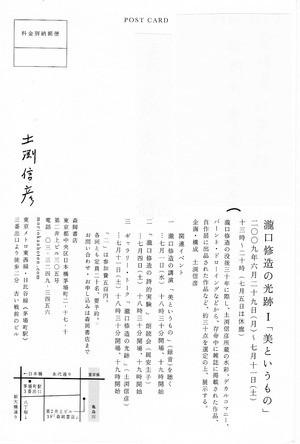 POST CARD
料金別納郵便
土渕信彦
瀧口修造の光跡Ⅰ「美というもの」
二〇〇九年六月二十九日(月)~七月十一日(土)
十三時~二十時(七月五日は休廊)
瀧口修造の没後三十年に際し、土渕信彦所蔵の水彩、デカルコマニー、
バーント・ドローイングなどから、存命中に雑誌に掲載された作品、
自作展に出品された作品など、約三十点を選定の上、展示する。
企画・構成 土渕信彦
関連イベント
一 瀧口修造の講演「美というもの」(録音)を聴く
…七月一日(水) 十八時三十分開場、十九時開始
二「瀧口修造の詩的実験」朗読会
…七月四日(土) 十八時三十分開場、十九時開始
三 ギャラリー・トーク「瀧口修造の光跡」(土渕信彦)
…七月十一日(土) 十八時三十分開場、十九時開始
「二」は参加費五百円。
各回とも定員二十名、要予約。
お問い合わせ・お申し込みは森岡書店まで
森岡書店
東京都中央区日本橋茅場町二-十七-十三
第二井上ビル三〇五号
電話 〇三-三二四九-三四五六
moriokashoten.com
東京メトロ東西線・日比谷線・茅場町駅
三番出口より徒歩二分
日本橋
永代通り
霊岸橋
茅場町駅
新大橋通り
八丁堀
亀島川
第2井上ビル
3F 森岡書店